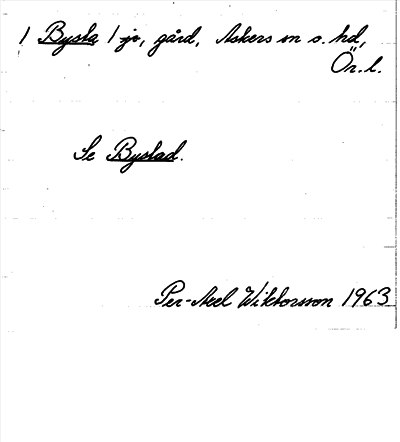 1 Bysta 1 jo, gård, Askers sn o. hd,
Ör. l.
Se Bystad.
Per-Axel Wiktorsson 1963